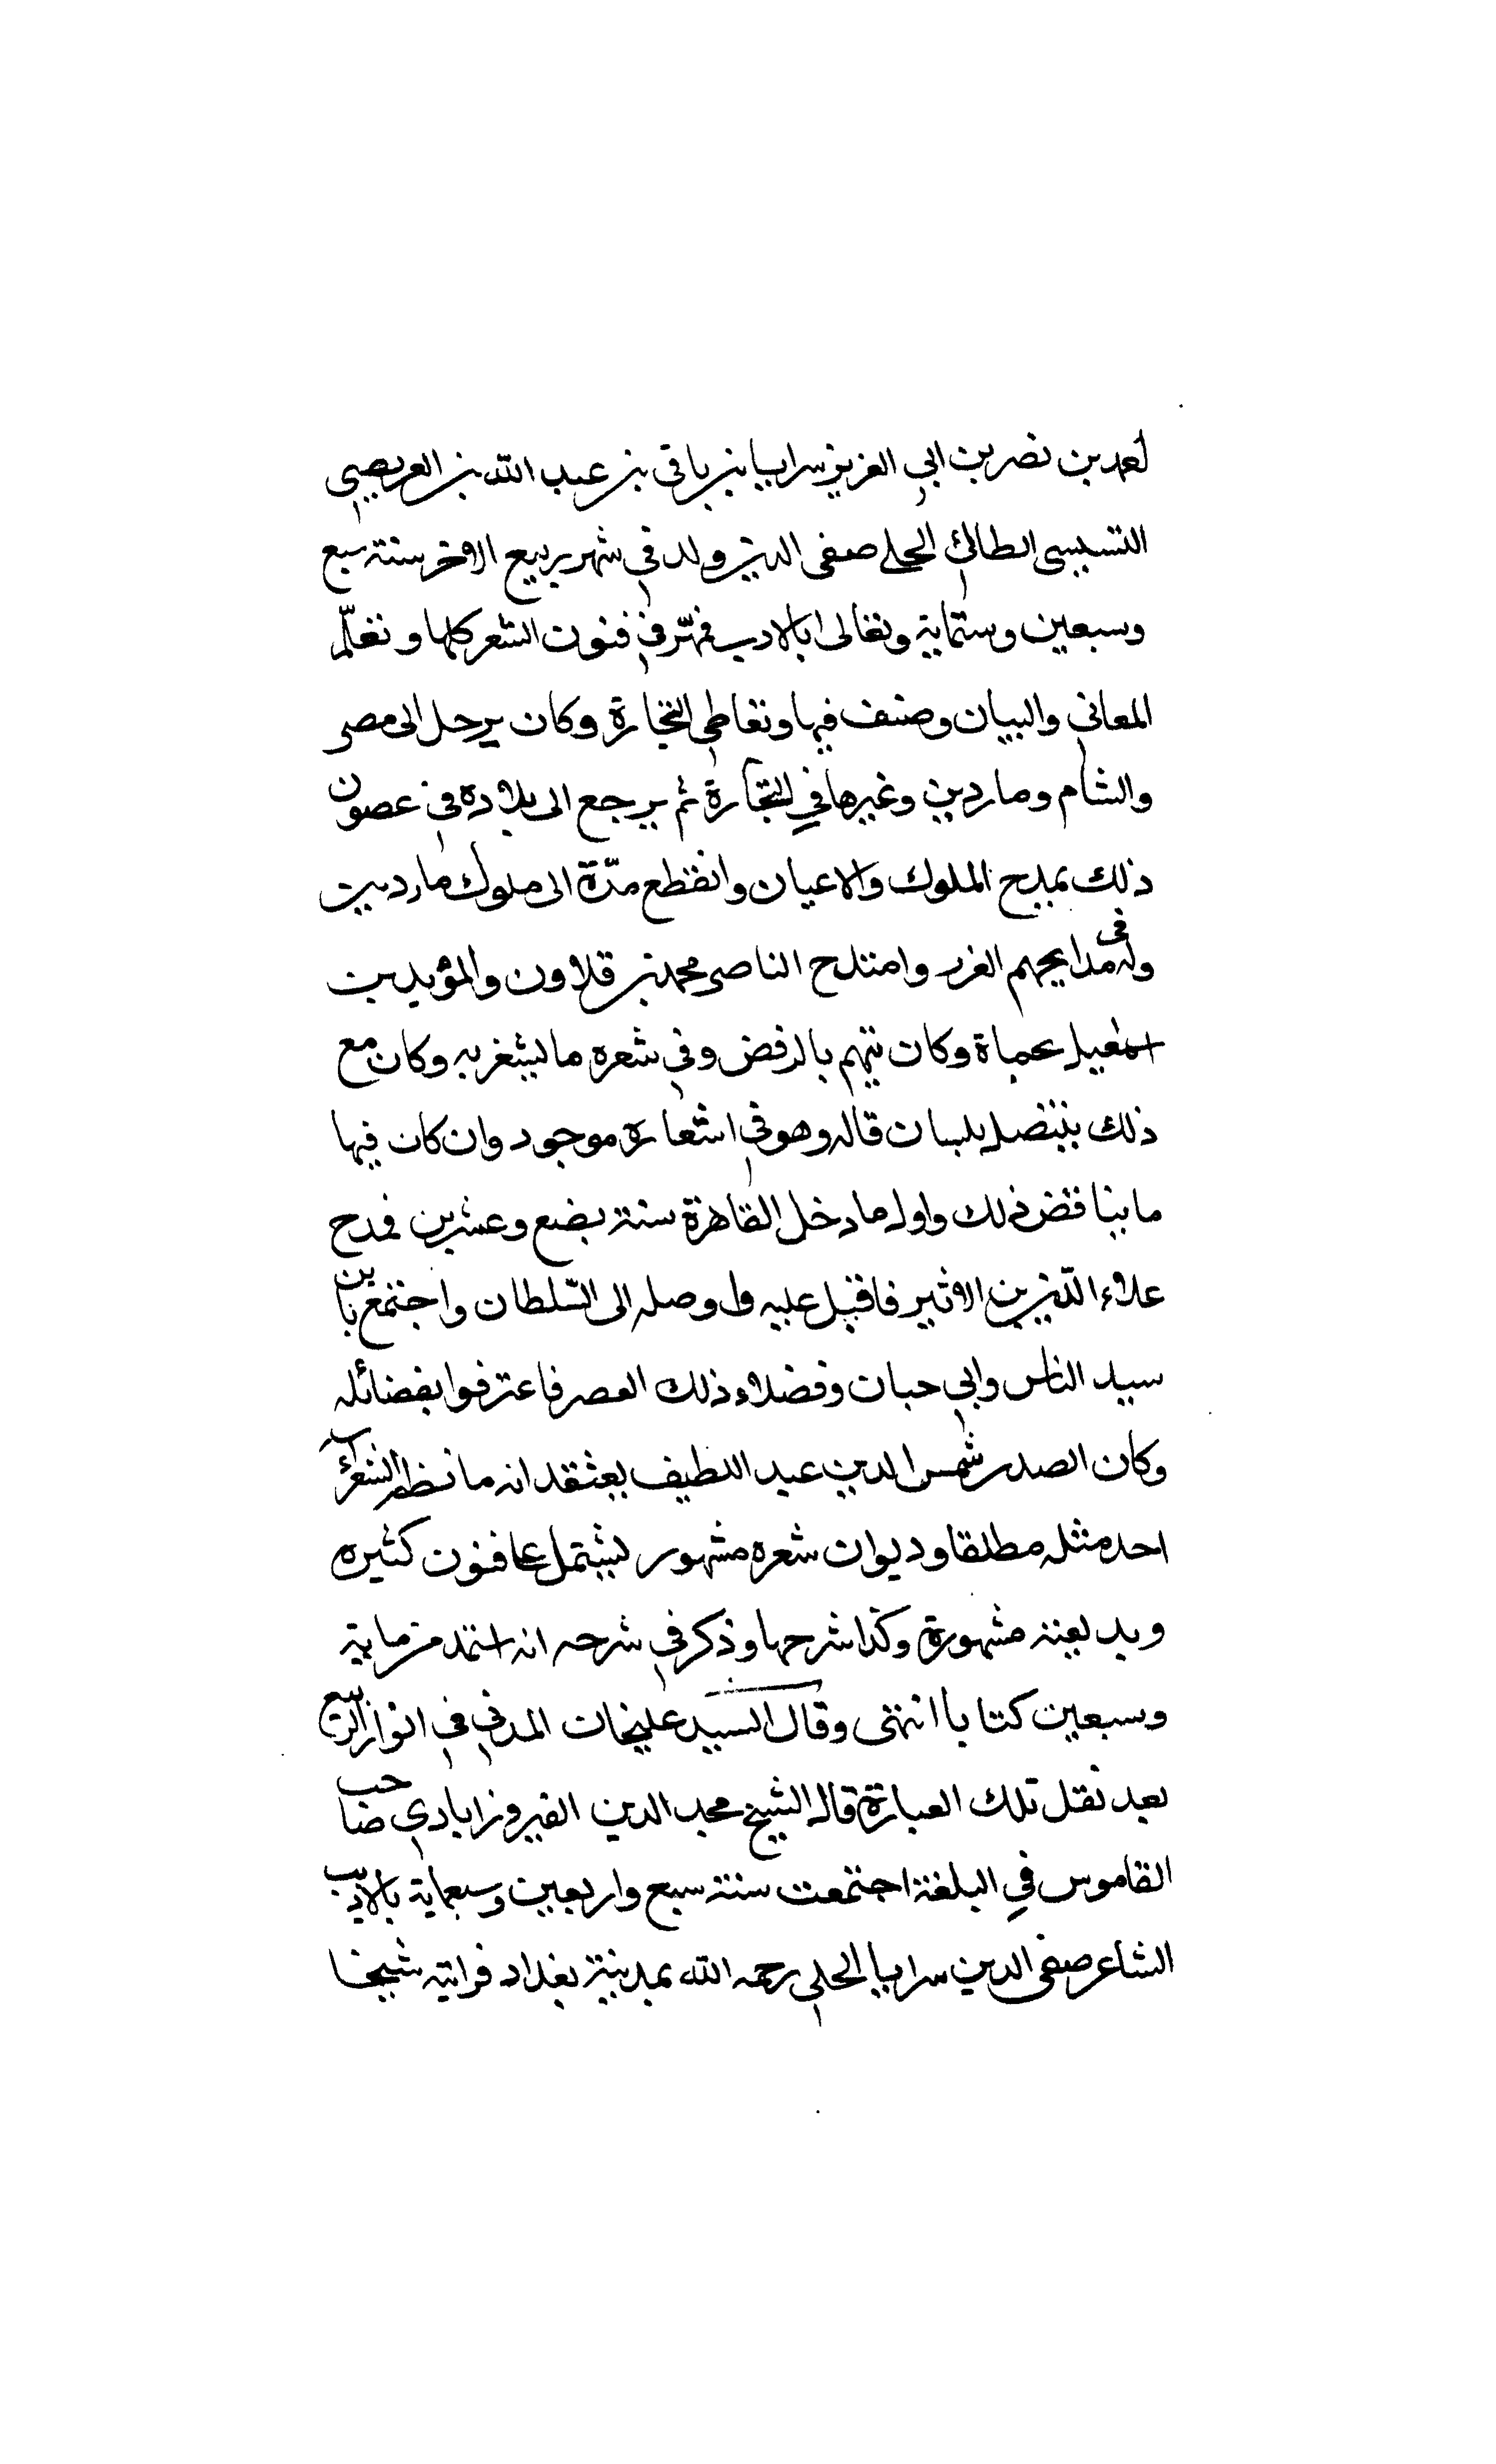 احمد بن نصر بن ابي العزيز سرايا بن باقى بن عبد الله بن العريصي
التنبسي الطائي الحلي صفى الدين ولد في شهر ربيع الاخر سنة سبع
وسبعين وستماية وتعالى بالادب فمهّر في فنون الشعر كلها وتعلّم
المعاني والبيان وصنف فيها وتعاطى التجارة وكان يرحل الى مصر
والشام وماردين وغيرها في التجارة ثم يرجع الى بلاده في غصون
ذلك يمدح الملوك والاعيان وانقطع مدّة الى ملوك ماردين
وله في مدايحهم الغرر وامتدح الناصر محمد بن قلاون والمؤيد بن
اسمعيل بحماة وكان يتهم بالرفض وفي شعره ما يشعر به وكان مع
ذلك يتنصل بلسان قاله وهو في اشعاره موجود وان كان فيها
ما يناقض ذلك واول ما دخل القاهرة سنة بضع وعشرين فمدح
علاء الدّين بن الاثير فاقبل عليه واوصله الى السّلطان واجتمع بابن
سيد الناس وابي حيان وفضلاء ذلك العصر فاعترفوا بفضائله
وكان الصدر شمس الدين عبد اللطيف يعتقد انه ما نظم الشعراء
احد مثله مطلقا وديوان شعره مشهور يشتمل على فنون كثيره
وبديعيته مشهورة وكذا شرحها وذكر في شرحه انه استمد من ماية
وسبعين كتابا انتهى وقال السيد عليخان المدني في انوار الربيع
بعد نقل تلك العبارة قال الشيخ مجد الدين الفيروزابادي صاحب
القاموس في البلغة اجتمعت سنة سبع واربعين وسبعماية بالاديب
الشاعر صفى الدين سرايا الحلي رحمه الله بمدينة بغداد فرايته شيخا